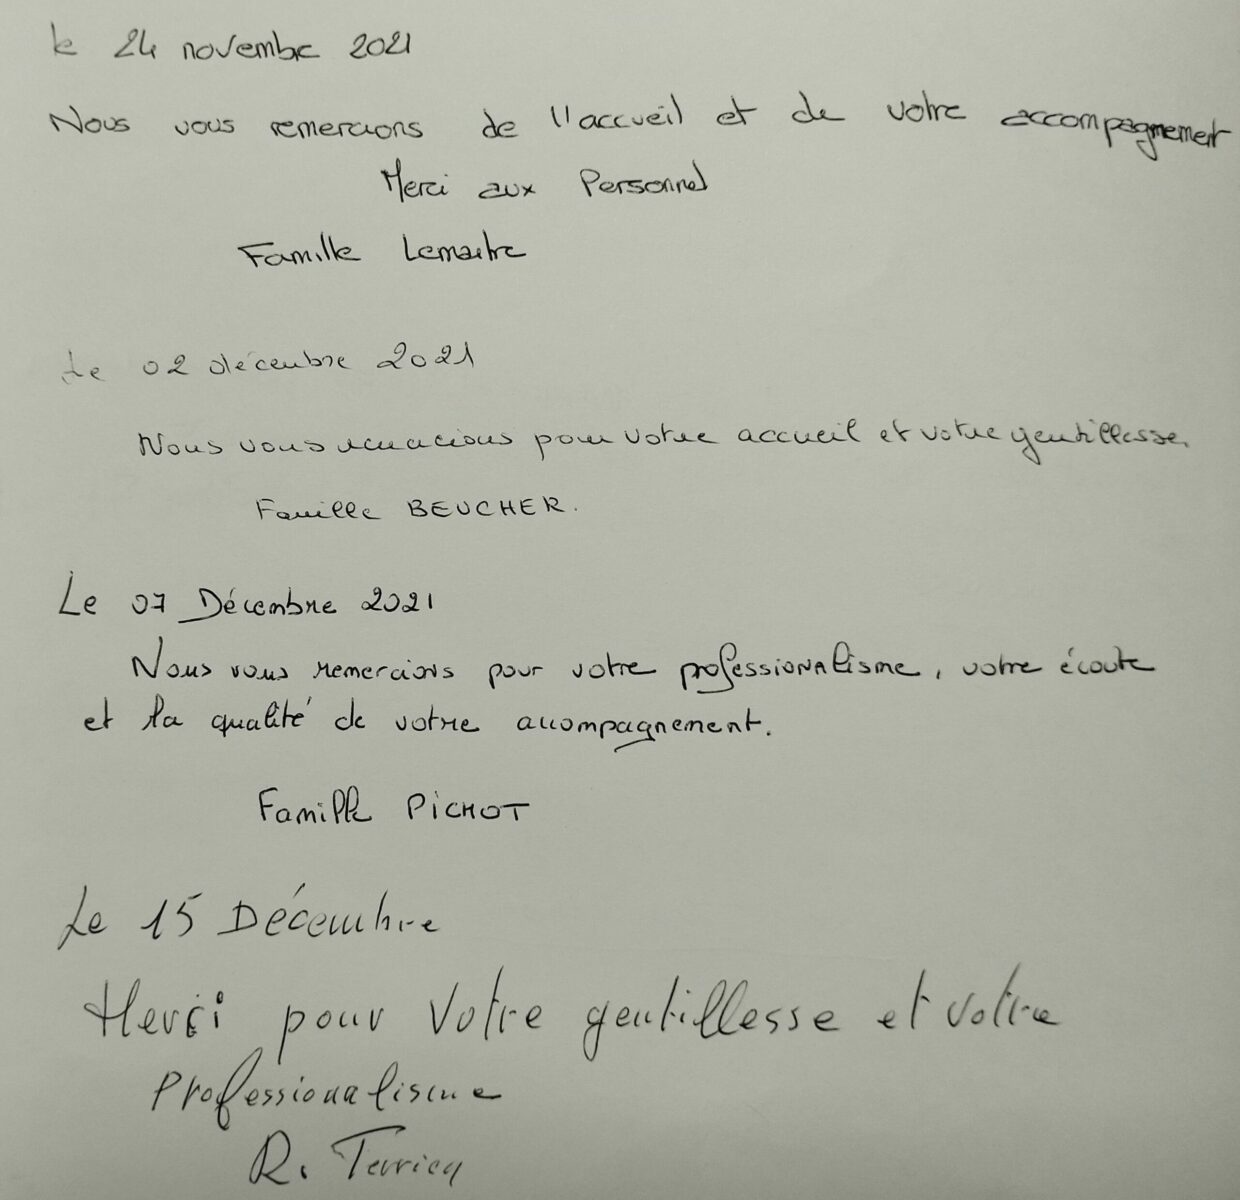 le 24 novembre 2021
Nous vous remercions de l'accueil et de votre accompagnement
Merci aux Personnel
Famille Lemaitre
Le 02 décembre 2021
Nous vous remercions pour votre accueil et votre gentillesse.
Famille BEUCHER.
Le 07 Décembre 2021
Nous vous remercions pour votre professionalisme, votre écoute
et la qualité de votre accompagnement.
Famille PICHOT
Le 15 Décembre
Merci pour Votre gentillesse et votre
Professionalisme
R.